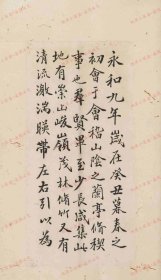 永和九年歲在癸丑暮春之
初會于會稽山陰之蘭亭脩稧
事也羣賢畢至少長咸集此
地有崇山峻嶺茂林脩竹又有
清流激湍暎帶左右引以為